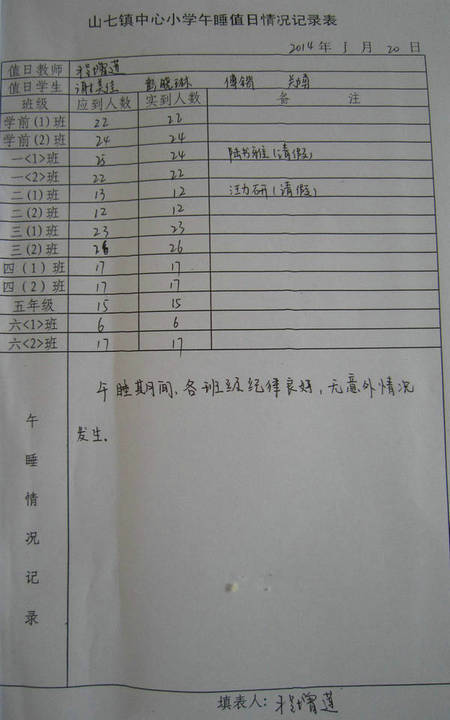 山七镇中心小学午睡值日情况记录表
2014年5月20日
值日教师 程增莲
值日学生 谢美佳 彭晓琳
班级 应到人数 实到人数 备注
学前(1)班 22 22
学前(2)班 24 24
一<1>班 25 24 陆书雅(请假)
一<2>班 22 22
二(1)班 13 12 汪力研(请假)
二(2)班 12 12
三(1)班 23 23
三(2)班 26 26
四(1)班 17 17
四(2)班 17 17
五年级 15 15
六<1>班 6 6
六<2>班 17 17
午睡情况记录
午睡期间、各班级纪律良好,无意外情况
发生.
填表人: 程增莲